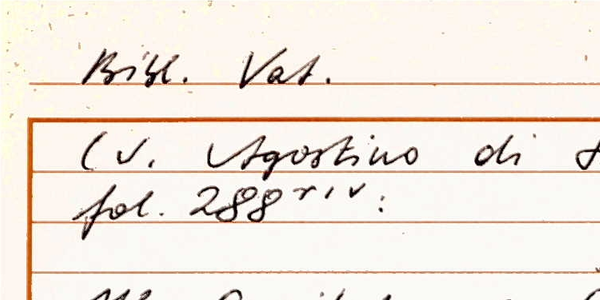 Bibl. Vat.
(v. Agostino di
fol. 288 r, v: